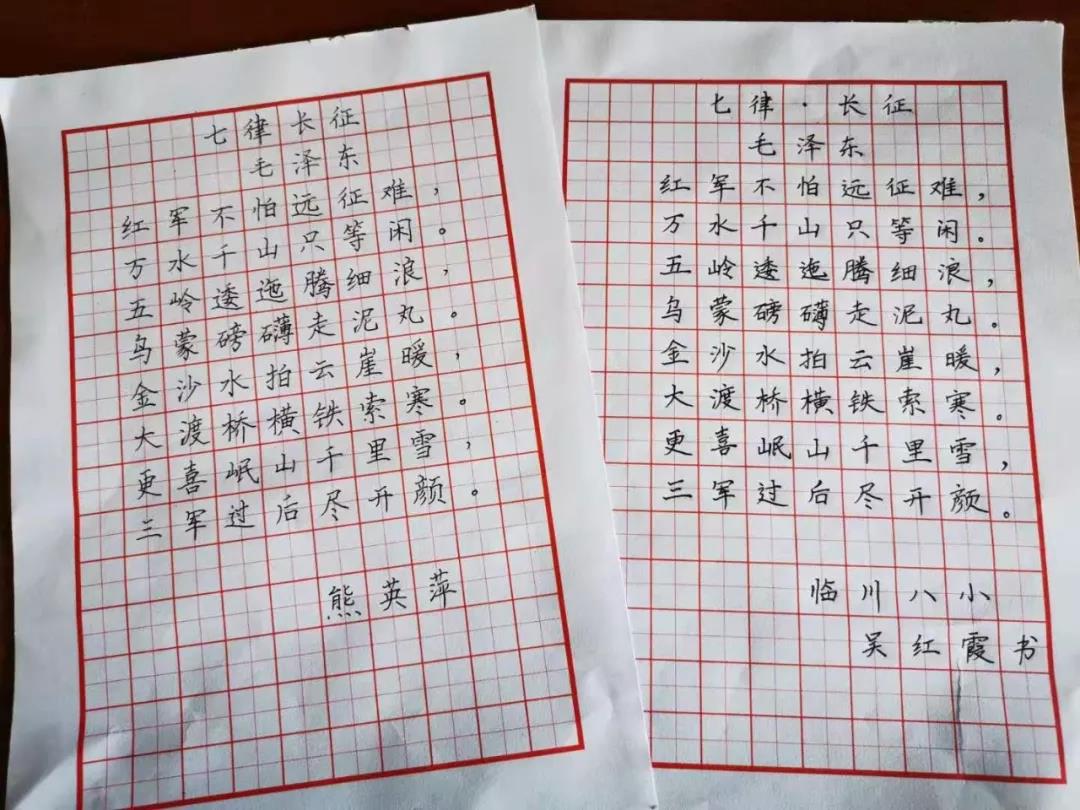 七律长征
毛泽东
红军不怕远征难，
万水千山只等闲。
五岭逶迤腾细浪，
乌蒙磅礴走泥丸。
金沙水拍云崖暖，
大渡桥横铁索寒。
更喜岷山千里雪，
三军过后尽开颜。
熊英萍
七律·长征
毛泽东
红军不怕远征难，
万水千山只等闲。
五岭逶迤腾细浪，
乌蒙磅礴走泥丸。
金沙水拍云崖暖，
大渡桥横铁索寒。
更喜岷山千里雪，
三军过后尽开颜。
临川八小
吴红霞书